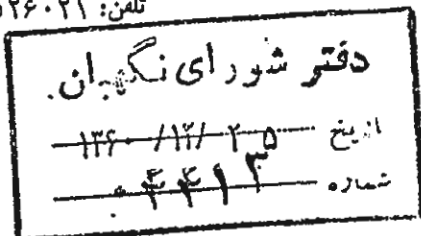 تلفن:
دفتر شورای نگهبان
تاریخ ۱۳۶۰/۱۲/۲۵
شماره